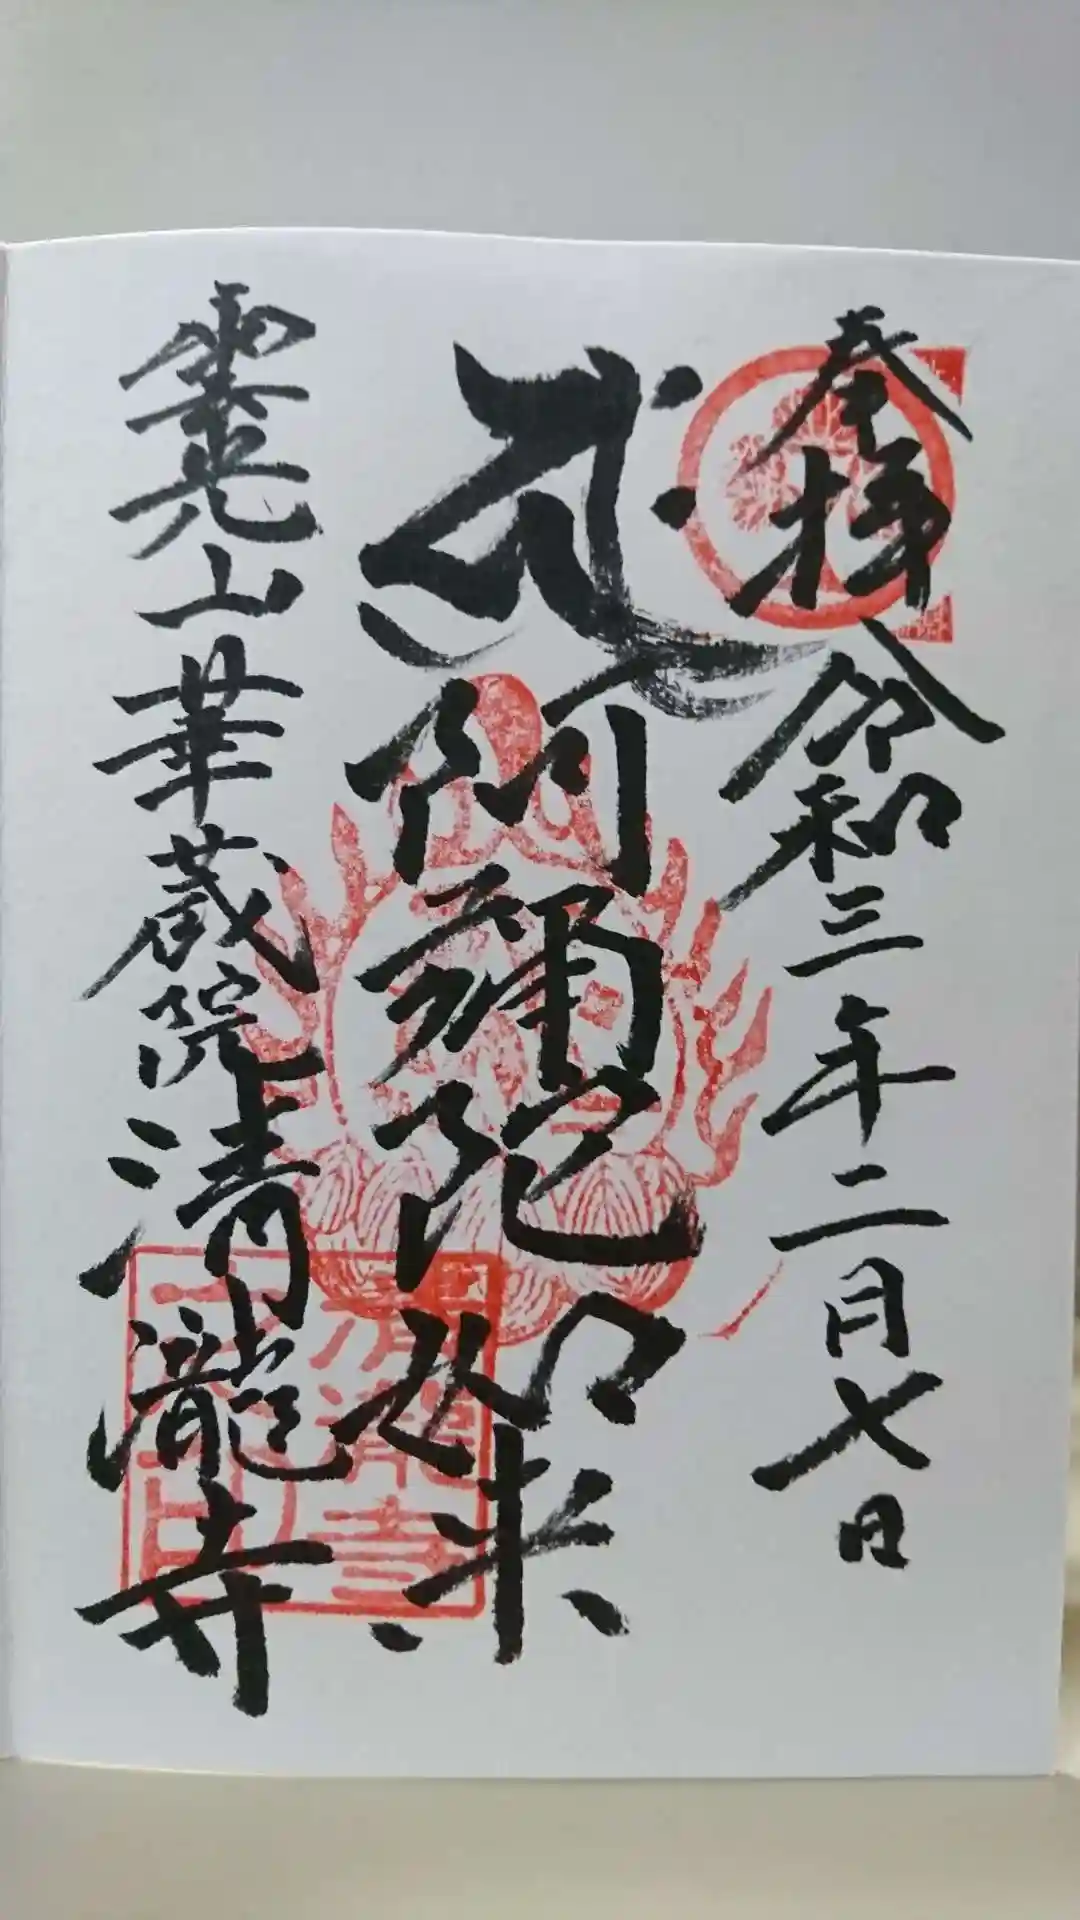 奉拝 令和三年二月七日
阿彌陀如来
雲光山 華蔵院 清瀧寺
清瀧寺